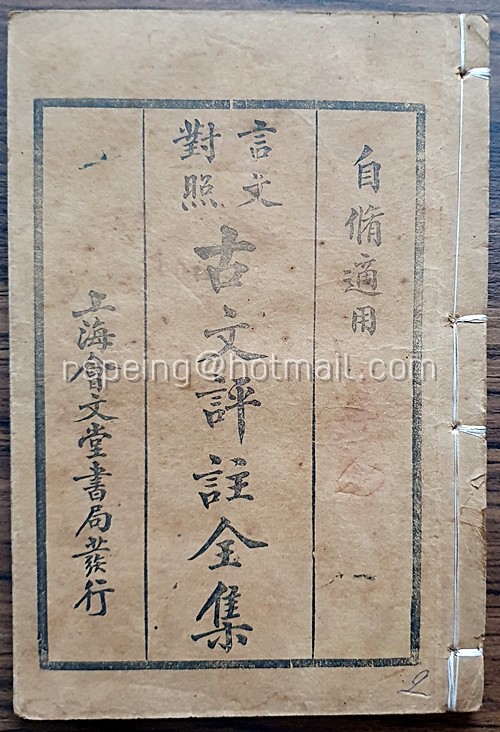 自脩適用
言文
對照
古文評註全集
上海會文堂書局發行
2